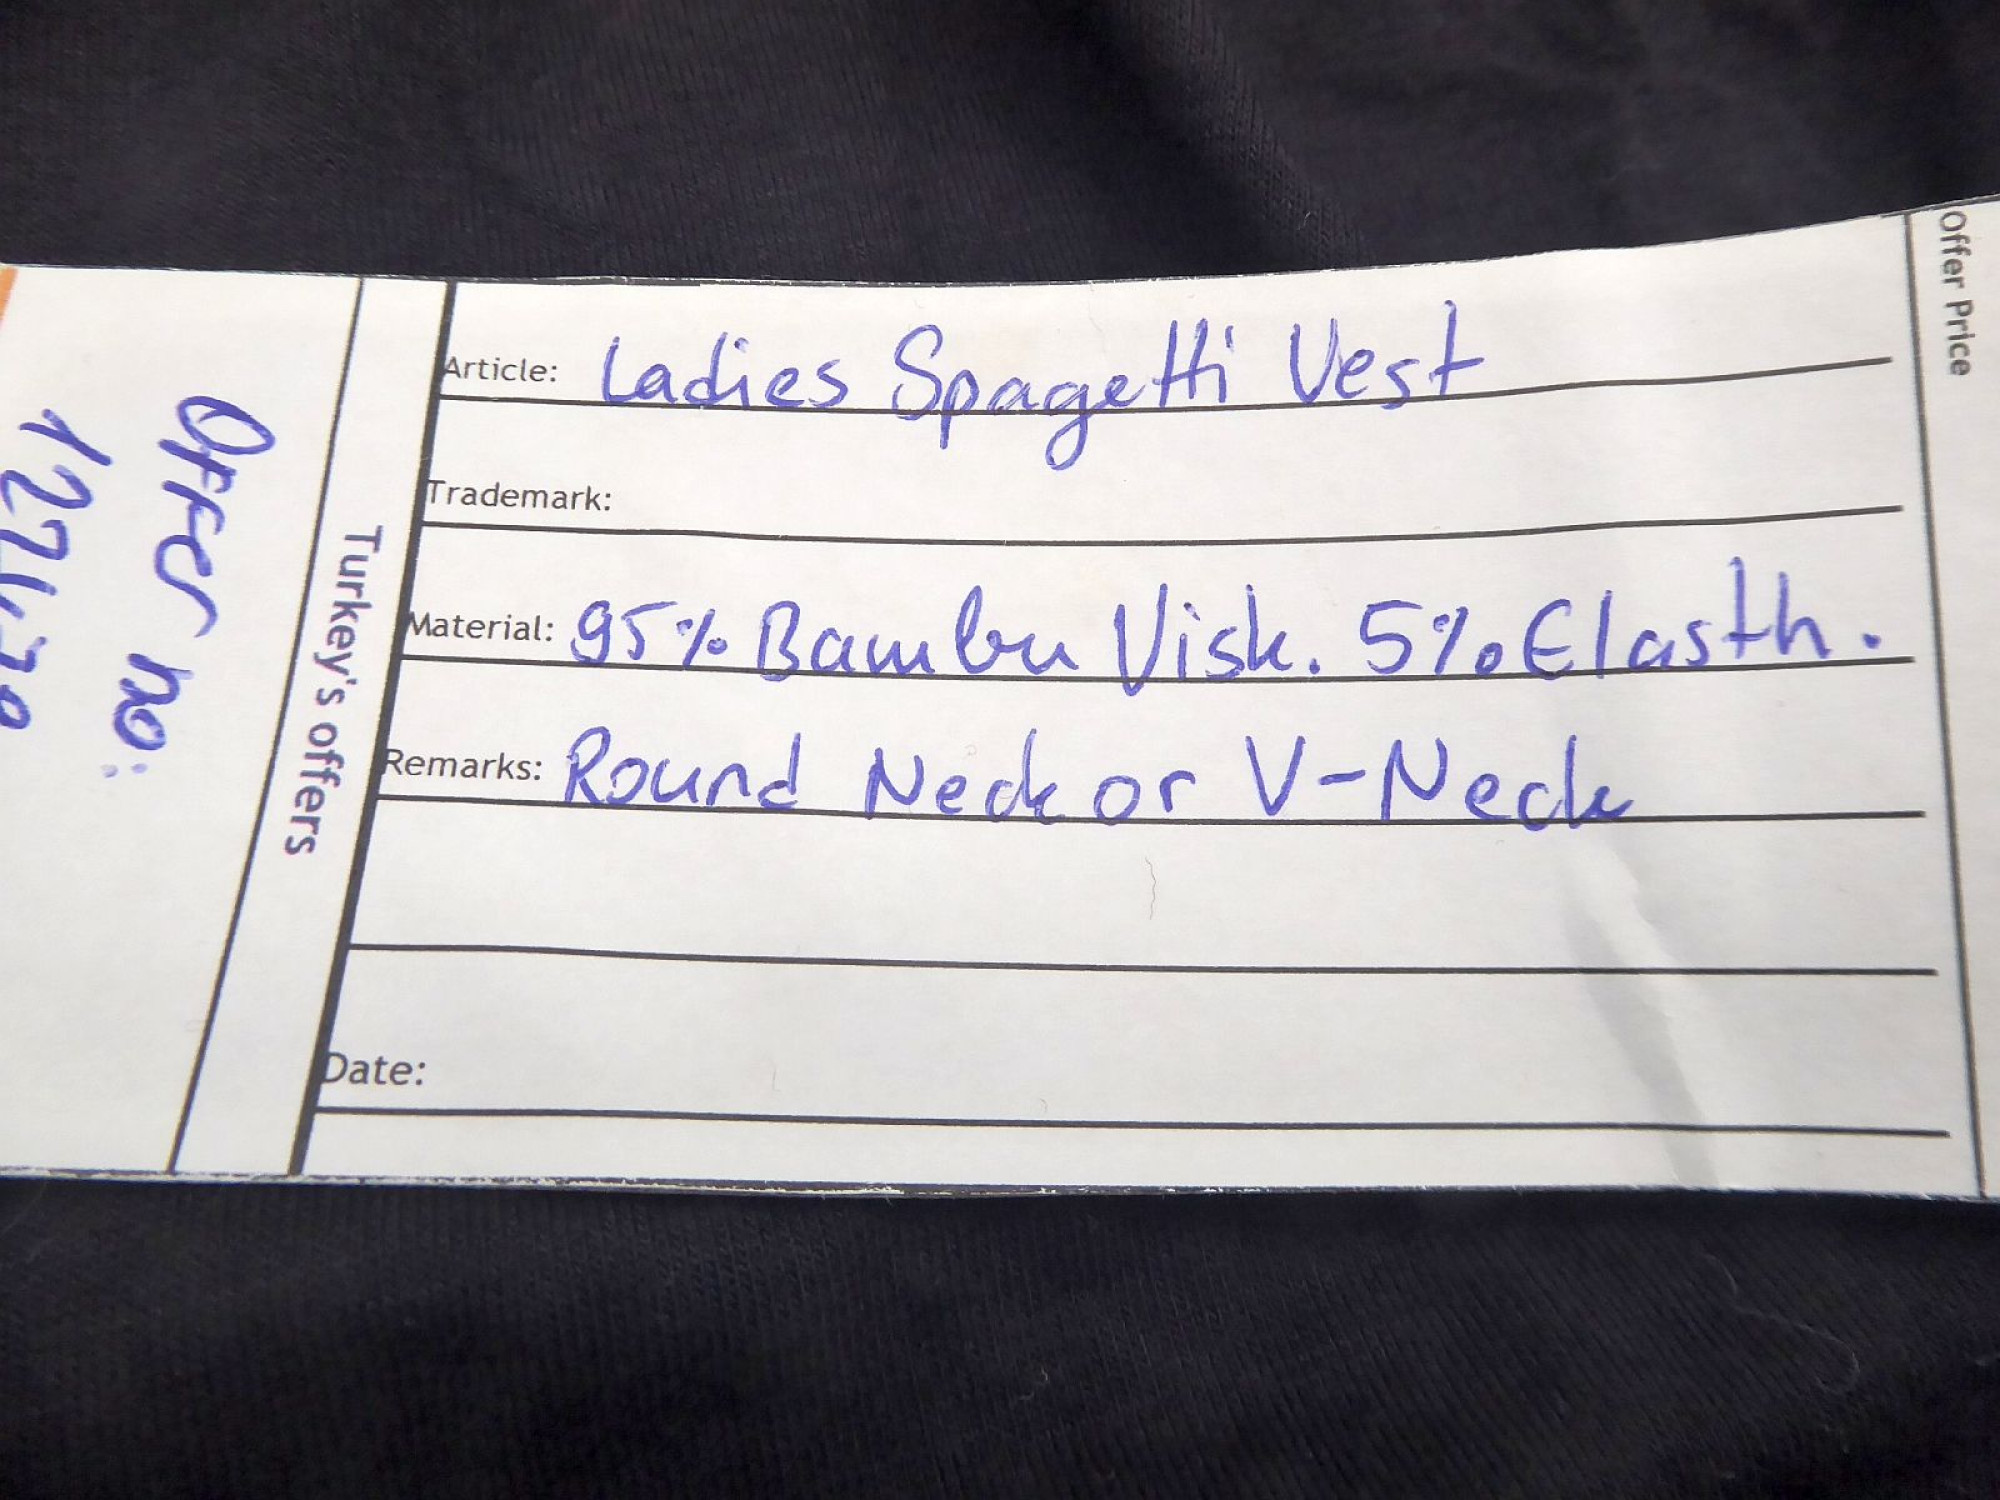 Offer no:
Turkey's offers
Article: Ladies Spagetti Vest
Trademark:
Material: 95% Bambu Visk. 5% Elasth.
Remarks: Round Neck or V-Neck
Date:
Offer Price